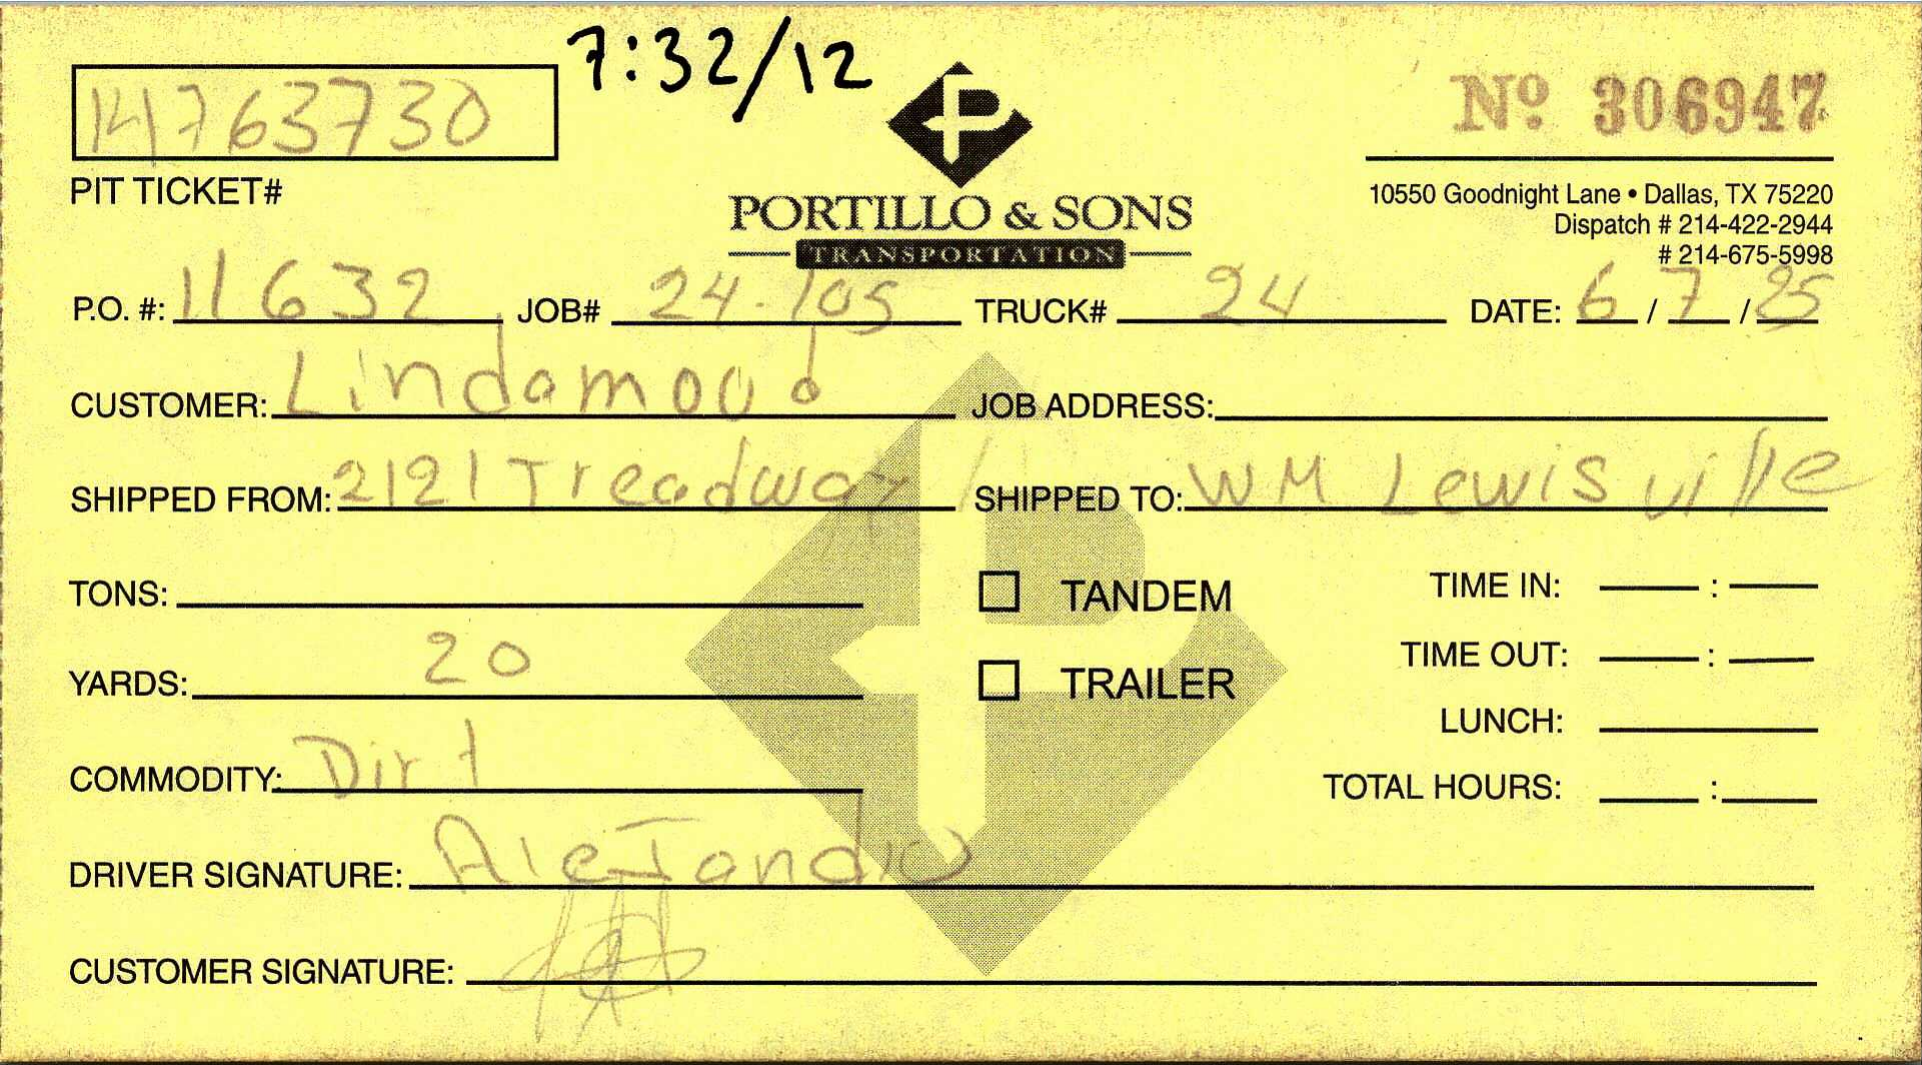 7:32/12
14763730
PIT TICKET#
PORTILLO & SONS
TRANSPORTATION
Nº 306947
10550 Goodnight Lane • Dallas, TX 75220
Dispatch # 214-422-2944
# 214-675-5998
P.O. #: 11632 JOB# 24-105 TRUCK# 24 DATE: 6/7/25
CUSTOMER: Lindamood JOB ADDRESS:
SHIPPED FROM: 2121 Treadway SHIPPED TO: WM Lewisville
TONS: TANDEM TIME IN: :
YARDS: 20 TRAILER TIME OUT: :
LUNCH:
COMMODITY: Dirt TOTAL HOURS: :
DRIVER SIGNATURE: AleJandro
CUSTOMER SIGNATURE: